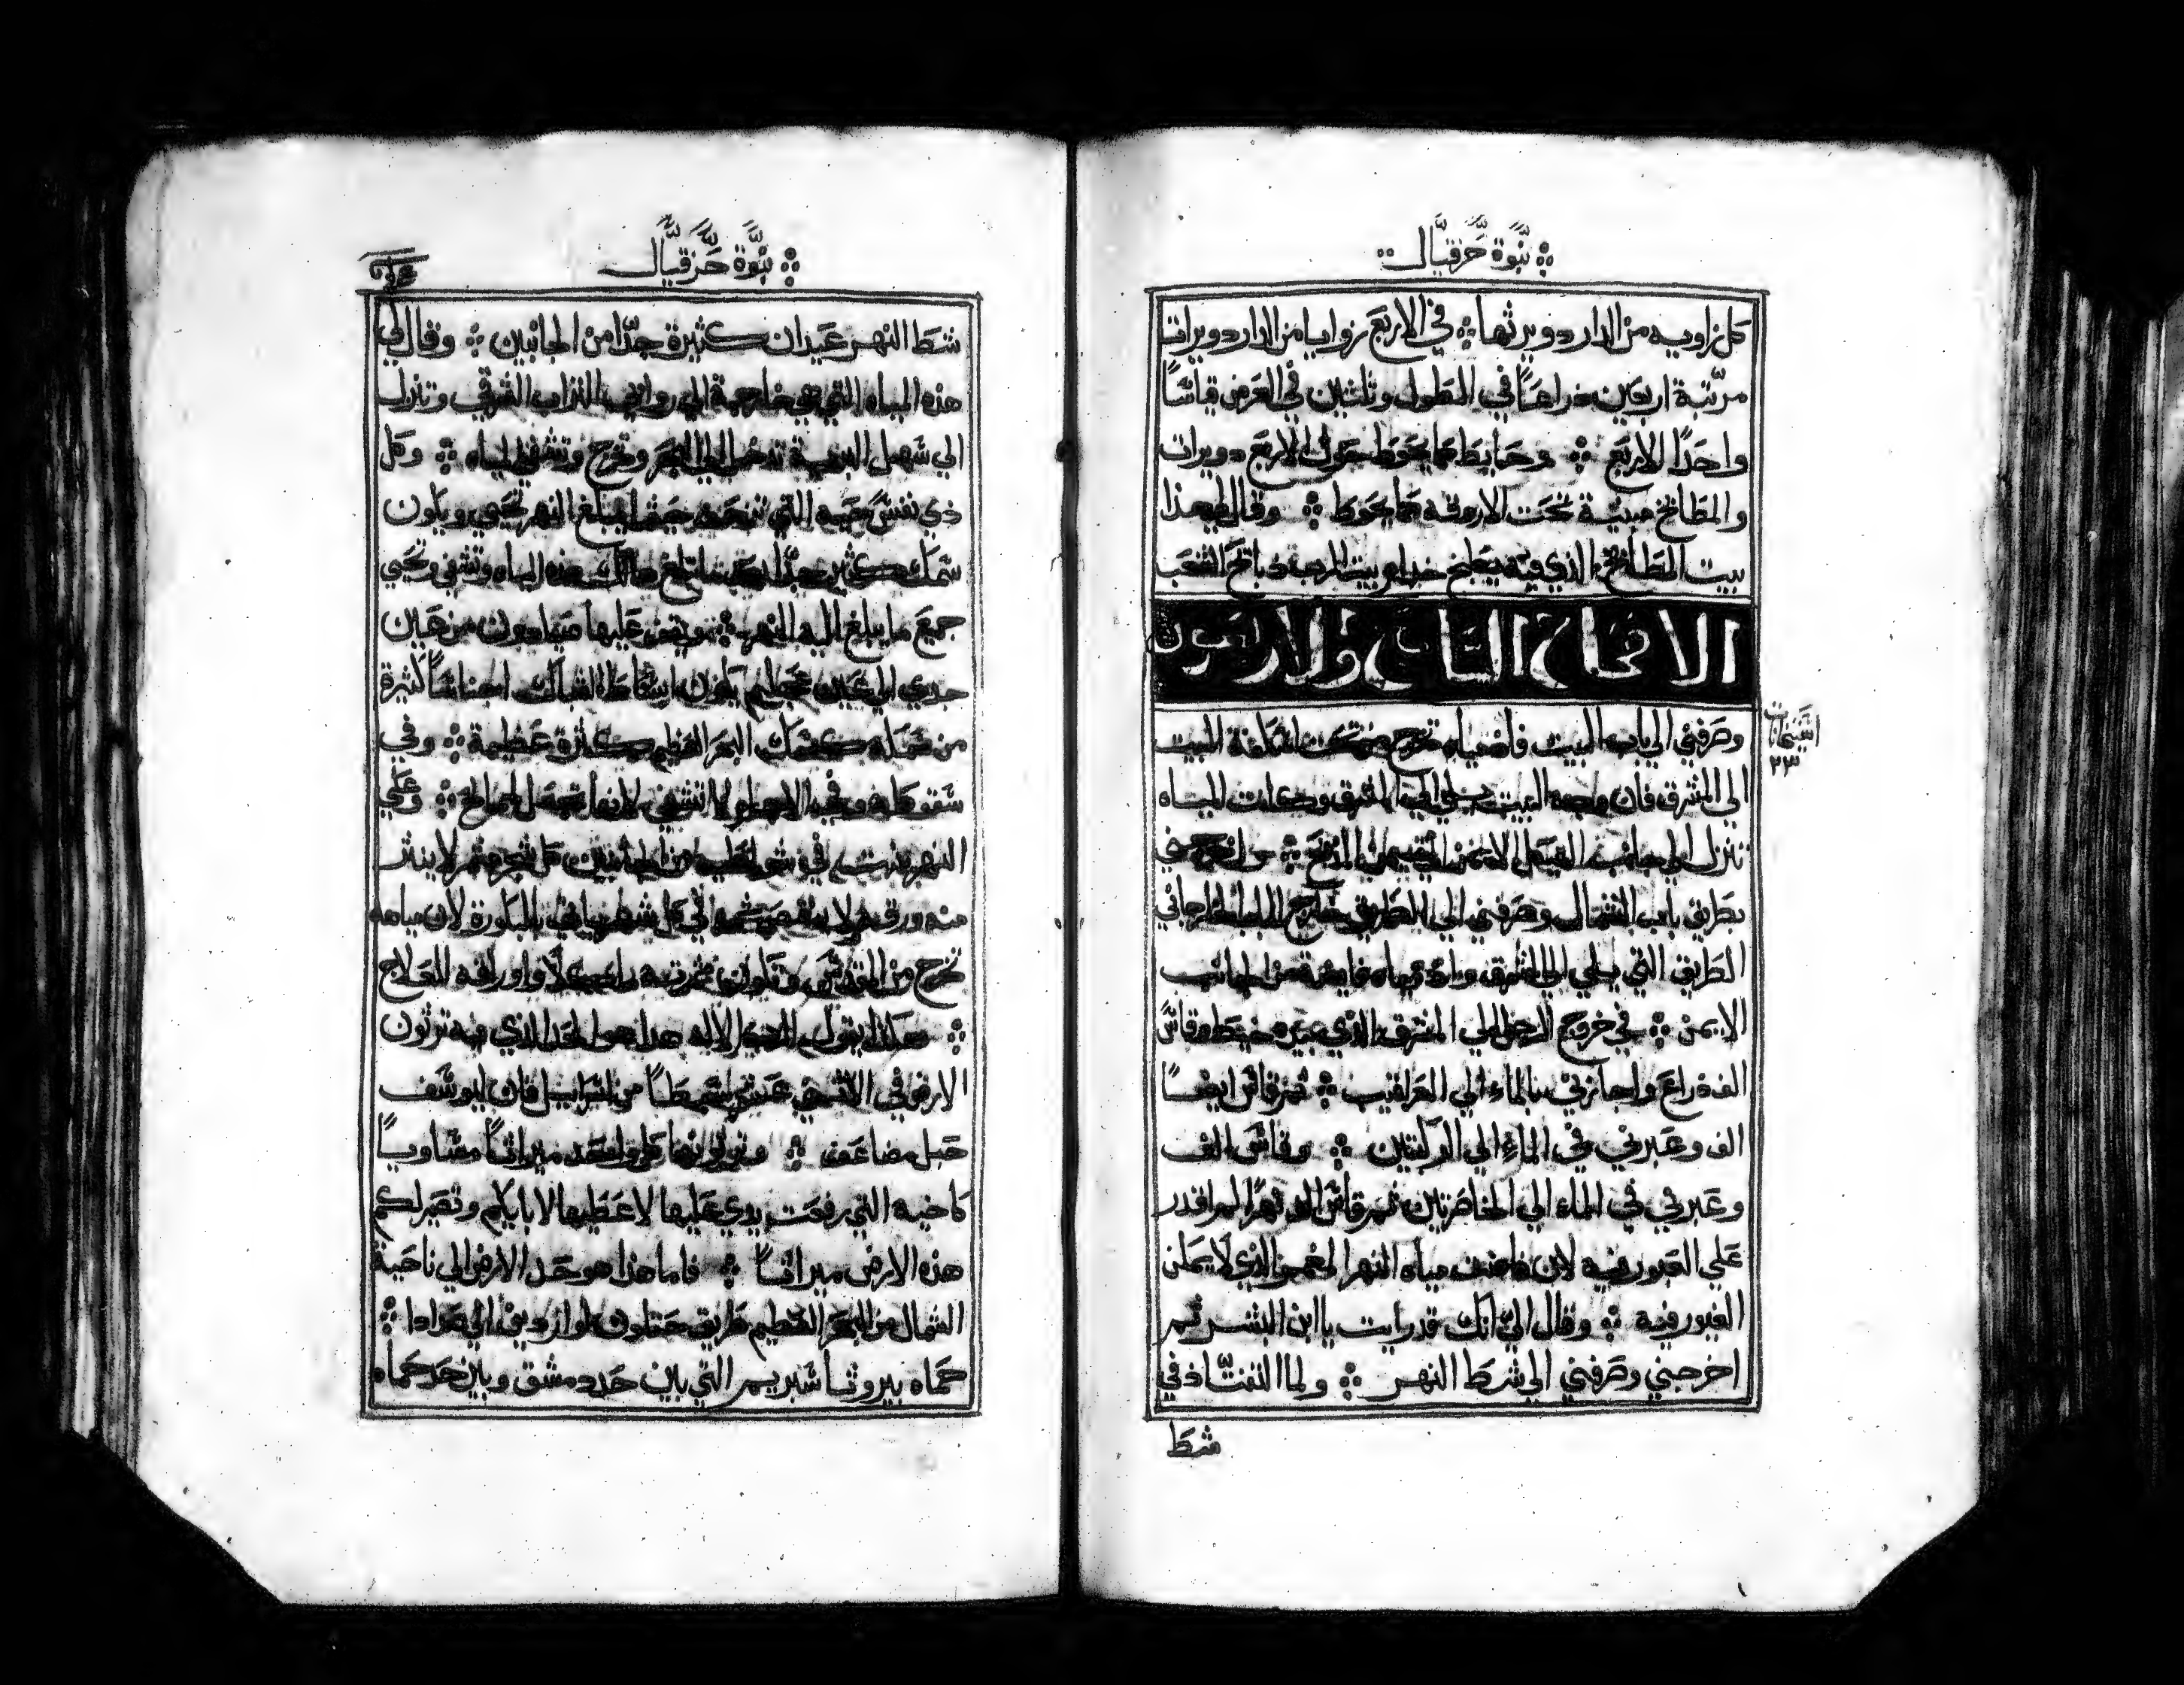 نبوة حزقيال
كل زاويه من الدار دويرثها في الاربع زوايا من الدار دويرات
مرتبة اربعين ذراعًا في الطول وثلثين في العرض قياسًا
واحدًا الاربع وحايط مما يحوط حول الاربع دويرات
والمطابخ مبنية تحت الاروقه مما يحوط وقال لي هذا
بيت المطابخ الذي فيه يطبخ خدام بيت الرب ذبايح الشعب
الاصحاح السابع والاربعون
وصرفني الي باب البيت فاذ مياه تخرج من تحت اسكفة البيت
الي المشرق فان وجه البيت يلي الي المشرق وكانت المياه
تنزل الي جانب الهيكل الايمن الي تيمن المذبح واخرجني
بطريق باب الشمال وصرفني الي الطريق خارج الباب الخارجاني
الطريق التي يلي الي المشرق واذ مياه فايضة من الجانب
الايمن في خروج الرجل الي المشرق الذي بيده خيط وقاس
الف ذراع واجازني بالماء الي العراقيب ثم قاس ايضًا
الف وعبرني في الماء الي الركبتين وقاس الف
وعبرني في الماء الي الخاصرتين ثم قاس الف نهرًا لم اقدر
علي العبور فيه لان فاضت مياه النهر الغميق الذي لا يمكن
العبور فيه وقال الي انك قد رايت يا ابن البشر ثم
اخرجني وصرفني الي شط النهر ولما التفتّ اذ في
شط
اشعيات
٢٣
نبوة حزقيال
شط النهر عيدان كثيرة جدًا من الجانبين وقال لي
هذه المياه التي هي خارجة الي روابي التراب الشرقي وتنزل
الي سهل البرية تدخل الي البحر وتخرج وتشفي المياه وكل
ذي نفس حيه التي تتحرك حيثما يبلغ النهر تحيي ويكون
سمك كثير جدًا بعد ما تبلغ هناك هذه المياه وتشفي وتحيي
جميع ما يبلغ اليه النهر ويقف عليها صيادون من عين
جدي الي عين عجليم يكون انبساط الشباك اجناسًا كثيرة
من سمكه كسمك البحر العظيم كثرة عظيمة وفي
النهر ينبت في شواطيه من الجانبين كل شجر مثمر لا ينتثر
منه ورقه ولا ينقص ثمره في كل شهر ياتي بالبكورة لان مياهه
تخرج من المقدس وتكون ثمرته ماكلًا واوراقه للعلاج
هكذا يقول الرب الاله هذا هو الحد الذي فيه ترثون
الارض في الاثني عشر سبطًا من اسراييل فان ليوسف
حبل مضاعف وترثونها كل واحد ميراثًا مساويًا
كاخيه التي رفعت يدي عليها لاعطيها لابايكم وتصير لكم
هذه الارض ميراثًا فاما هذا هو حد الارض الي ناحية
الشمال من البحر العظيم طريق حتلون لوارديني الي صدادا
حماه بيروثا سبريم التي بين حد دمشق وبين حد حماه